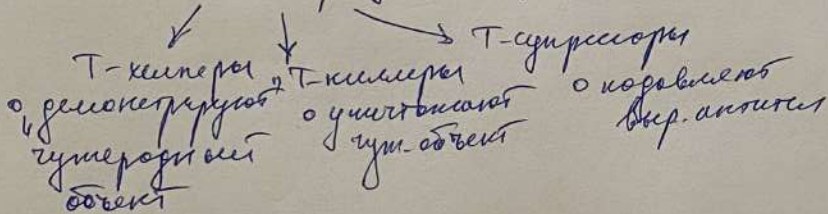 Т-хелперы
о „демонстрируют"
чужеродный
объект
Т-киллеры
о уничтожают
чуж. объект
Т-супрессоры
о подавляют
выр. антител